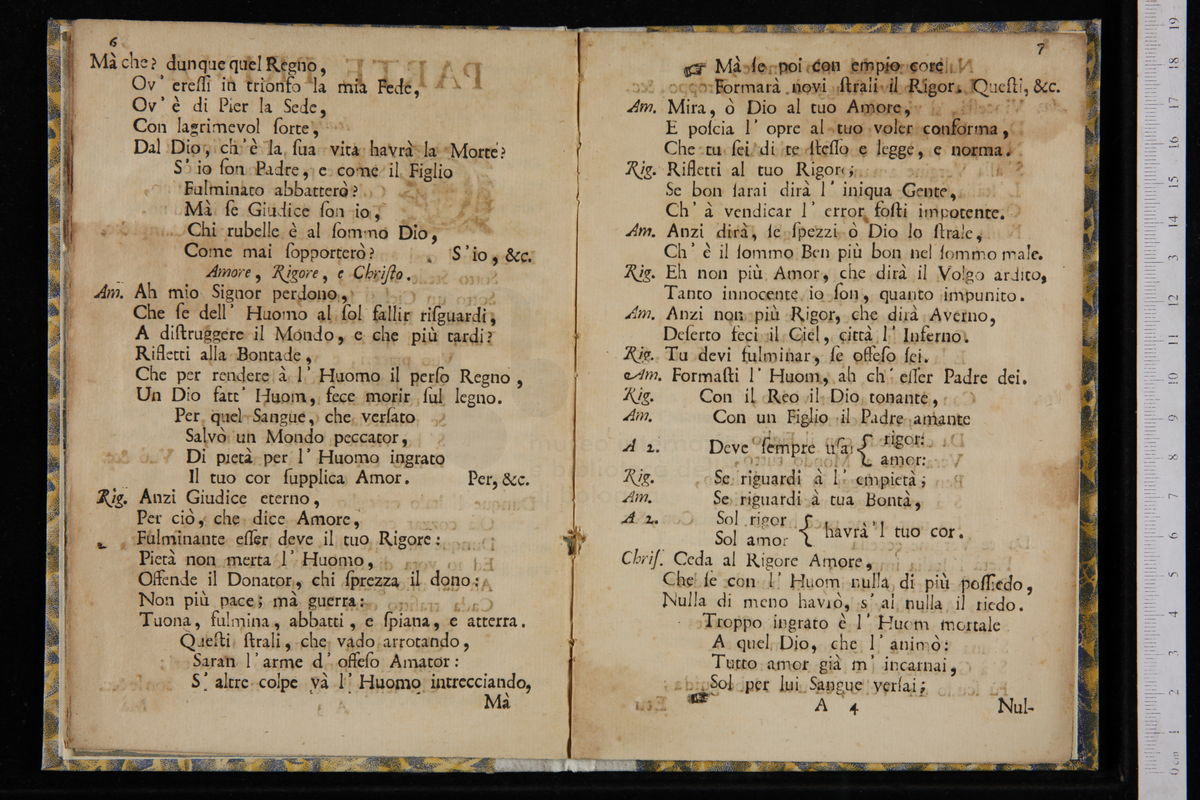 6
Mà che? dunque quel Regno,
Ov' ereſſi in trionfo la mia Fede,
Ov' è di Pier la Sede,
Con lagrimevol ſorte,
Dal Dio, ch'è la ſua vita havrà la Morte?
S' io ſon Padre, e come il Figlio
Fulminato abbatterò?
Mà ſe Giudice ſon io,
Chi rubelle è al ſommo Dio,
Come mai ſopporterò? S'io, &c.
Amore, Rigore, e Chriſto.
Am. Ah mio Signor perdono,
Che ſe dell' Huomo al ſol fallir riſguardi,
A diſtruggere il Mondo, e che più tardi?
Rifletti alla Bontade,
Che per rendere à l' Huomo il perſo Regno,
Un Dio fatt' Huom, fece morir ſul legno.
Per quel Sangue, che verſato
Salvò un Mondo peccator,
Di pietà per l' Huomo ingrato
Il tuo cor ſupplica Amor. Per, &c.
Rig. Anzi Giudice eterno,
Per ciò, che dice Amore,
Fulminante eſſer deve il tuo Rigore:
Pietà non merta l' Huomo,
Offende il Donator, chi ſprezza il dono:
Non più pace; mà guerra:
Tuona, fulmina, abbatti, e ſpiana, e atterra.
Queſti ſtrali, che vado arrotando,
Saran l'arme d' offeſo Amator:
S' altre colpe và l' Huomo intrecciando,
Mà
7
☞ Mà ſe poi con empio core
Formarà novi ſtrali il Rigor. Queſti, &c.
Am. Mira, ò Dio al tuo Amore,
E poſcia l' opre al tuo voler conforma,
Che tu ſei di te ſteſſo e legge, e norma.
Rig. Rifletti al tuo Rigore;
Se bon ſarai dirà l' iniqua Gente,
Ch' à vendicar l' error foſti impotente.
Am. Anzi dirà, ſe ſpezzi ò Dio lo ſtrale,
Ch' è il ſommo Ben più bon nel ſommo male.
Rig. Eh non più Amor, che dirà il Volgo ardito,
Tanto innocente io ſon, quanto impunito.
Am. Anzi non più Rigor, che dirà Averno,
Deſerto feci il Ciel, città l' Inferno.
Rig. Tu devi fulminar, ſe offeſo ſei.
Am. Formaſti l' Huom, ah ch' eſſer Padre dei.
Rig. Con il Reo il Dio tonante,
Am. Con un Figlio il Padre amante
A 2. Deve ſempre uſar { rigor:
amor:
Rig. Se riguardi à l' empietà;
Am. Se riguardi à tua Bontà,
A 2. Sol rigor
Sol amor { havrà 'l tuo cor.
Chriſ. Ceda al Rigore Amore,
Che ſe con l' Huom nulla di più poſſiedo,
Nulla di meno havrò, s'al nulla il riedo.
Troppo ingrato è l' Huom mortale
A quel Dio, che l' animò:
Tutto amor già m' incarnai,
Sol per lui Sangue verſai;
☞ A 4 Nul-